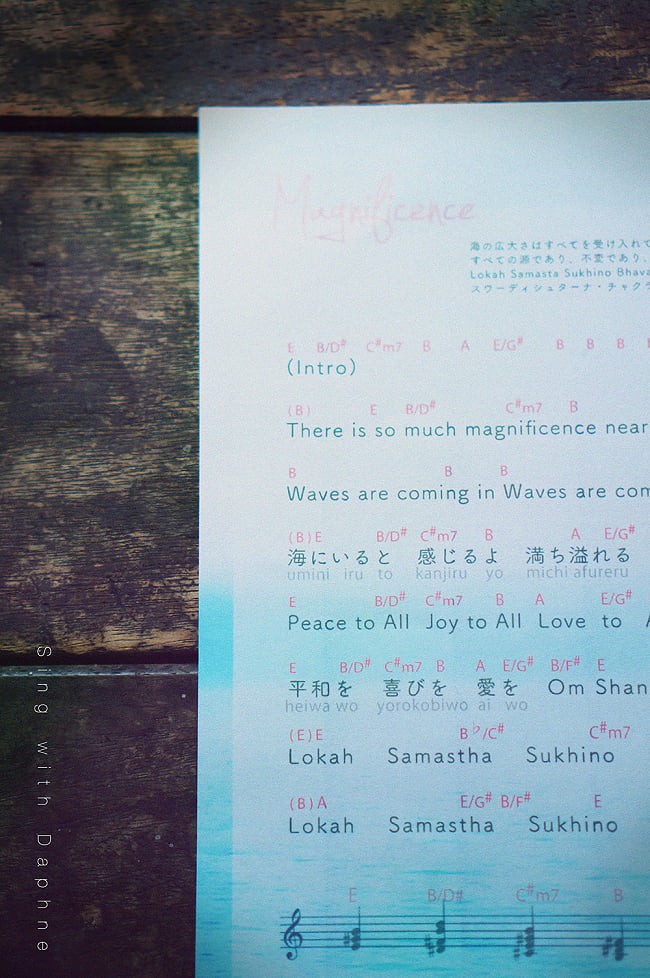 Magnificence
海の広大さはすべてを受け入れて
すべての源であり、不変であり、
Lokah Samasta Sukhino Bhava
スワーディシュターナ・チャクラ
E B/D# C#m7 B A E/G# B B B
(Intro)
(B) E B/D# C#m7 B
There is so much magnificence near
B B B
Waves are coming in Waves are com
(B)E B/D# C#m7 B A E/G#
海にいると 感じるよ 満ち溢れる
umini iru to kanjiru yo michi afureru
E B/D# C#m7 B A E/G#
Peace to All Joy to All Love to A
E B/D# C#m7 B A E/G# B/F# E
平和を 喜びを 愛を Om Shan
heiwa wo yorokobiwo ai wo
(E)E B♭/C# C#m7
Lokah Samastha Sukhino
(B)A E/G# B/F# E
Lokah Samastha Sukhino
E B/D# C#m7 B
Sing with Daphne